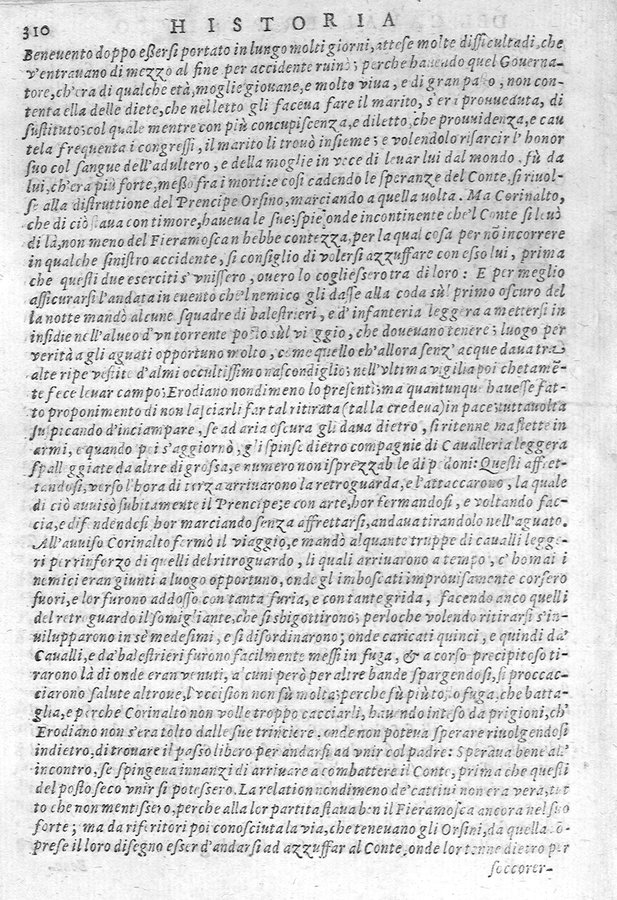 310 HISTORIA
Beneuento doppo eßersi portato in lungo molti giorni, attese molte difficultadi, che
v'entrauano di mezzo al fine per accidente ruinò; perche hauendo quel Gouerna-
tore, ch'era di qualche età, moglie giouane, e molto viua, e di gran pasto, non con-
tenta ella delle diete, che nel letto gli faceua fare il marito, s'era prouueduta, di
sustituto: col quale mentre con più concupiscenza, e diletto, che prouuidenza, e cau
tela frequenta i congressi, il marito li trouò insieme; e volendolo risarcir l'honor
suo col sangue dell'adultero, e della moglie in vece di leuar lui dal mondo, fù da
lui, ch'era più forte, meßo fra i morti: e così cadendo le speranze del Conte, si riuol-
se alla distruttione del Prencipe Orsino, marciando a quella volta. Ma Corinalto,
che di ciò staua con timore, haueua le sue spie, onde incontinente che'l Conte si leuò
di là, non meno del Fieramosca n hebbe contezza, per la qual cosa per nō incorrere
in qualche sinistro accidente, si consigliò di volersi azzuffare con esso lui, prima
che questi due eserciti s'vnissero, ouero lo cogliessero tra di loro: E per meglio
assicurarsi l'andata in euento che'l nemico gli dasse alla coda sù'l primo oscuro del
la notte mandò alcune squadre di balestrieri, e d'infanteria leggera a mettersi in
insidie nell'alueo d'vn torrente posto sù'l viaggio, che doueuano tenere; luogo per
verità a gli aguati opportuno molto, come quello ch'allora senz' acque daua tra
alte ripe vestite d'almi occultissimo nascondiglio; nell'vltima vigilia poi chetamē-
te fece leuar campo; Erodiano nondimeno lo presentì; ma quantunque hauesse fat-
to proponimento di non lasciarli far tal ritirata (tal la credeua) in pace; tuttauolta
suspicando d'inciampare, se ad aria oscura gli daua dietro, si ritenne ma stette in
armi, e quando poi s'aggiornò, gli spinse dietro compagnie di Caualleria leggera
spalleggiate da altre di grossa, e numero non isprezzabile di pedoni: Questi affret-
tandosi, verso l'hora di terza arriuarono la retroguarda, e l'attaccarono, la quale
di ciò auuisò subitamente il Prencipe; e con arte, hor fermandosi, e voltando fac-
cia, e difendendosi hor marciando senza affrettarsi, andaua tirandolo nell'aguato.
All'auuiso Corinalto fermò il viaggio, e mandò alquante truppe di caualli legge-
ri per rinforzo di quelli del ritroguardo, li quali arriuarono a tempo, c' homai i
nemici eran giunti a luogo opportuno, onde gl' imboscati improuisamente corsero
fuori, e lor furono addosso con tanta furia, e con tante grida, facendo anco quelli
del retroguardo il somigliante, che si sbigottirono; perloche volendo ritirarsi s'in-
uilupparono in sè medesimi, e si disordinarono; onde caricati quinci, e quindi da'
Caualli, e da'balestrieri furono facilmente messi in fuga, & a corso precipitoso ti-
rarono là di onde eran venuti, alcuni però per altre bande spargendosi, si procac-
ciarono salute altroue, l'vccision non fù molta; perche fù più tosto fuga, che batta-
glia, e perche Corinalto non volle troppo cacciarli, hauendo inteso da prigioni, ch'
Erodiano non s'era tolto dalle sue trinciere, onde non poteua sperare riuolgendosi
indietro, di trouare il passo libero per andarsi ad vnir col padre: Speraua bene al'
incontro, se spingeua innanzi di arriuare a combattere il Conte, prima che quesli
del posto seco vnir si potessero. La relation nondimeno de'cattiui non era vera, tut
to che non mentissero, perche alla lor partita staua ben il Fieramosca ancora nel suo
forte; ma da riferitori poi conosciuta la via, che teneuano gli Orsini, da quella cō-
prese il loro disegno esser d'andarsi ad azzuffar al Conte, onde lor tenne dietro per
soccorer-